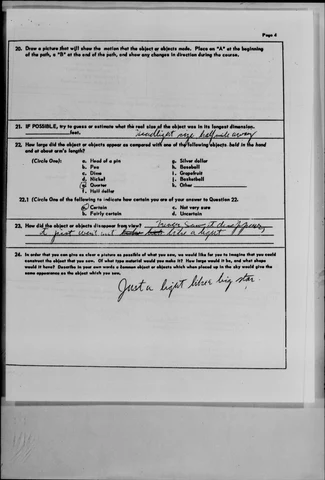 Page 4
20. Draw a picture that will show the motion that the object or objects made. Place an "A" at the beginning
of the path, a "B" at the end of the path, and show any changes in direction during the course.
21. IF POSSIBLE, try to guess or estimate what the real size of the object was in its longest dimension.
feet. headlight size half mile away
22. How large did the object or objects appear as compared with one of the following objects held in the hand
and at about arm's length?
(Circle One): a. Head of a pin g. Silver dollar
b. Pea h. Baseball
c. Dime i. Grapefruit
d. Nickel j. Basketball
e. Quarter k. Other
f. Half dollar
22.1 (Circle One of the following to indicate how certain you are of your answer to Question 22.
a. Certain c. Not very sure
b. Fairly certain d. Uncertain
23. How did the object or objects disappear from view? Never saw it disappear,
it just went out like a light
24. In order that you can give as clear a picture as possible of what you saw, we would like for you to imagine that you could
construct the object that you saw. Of what type material would you make it? How large would it be, and what shape
would it have? Describe in your own words a common object or objects which when placed up in the sky would give the
same appearance as the object which you saw.
Just a light like a big star.